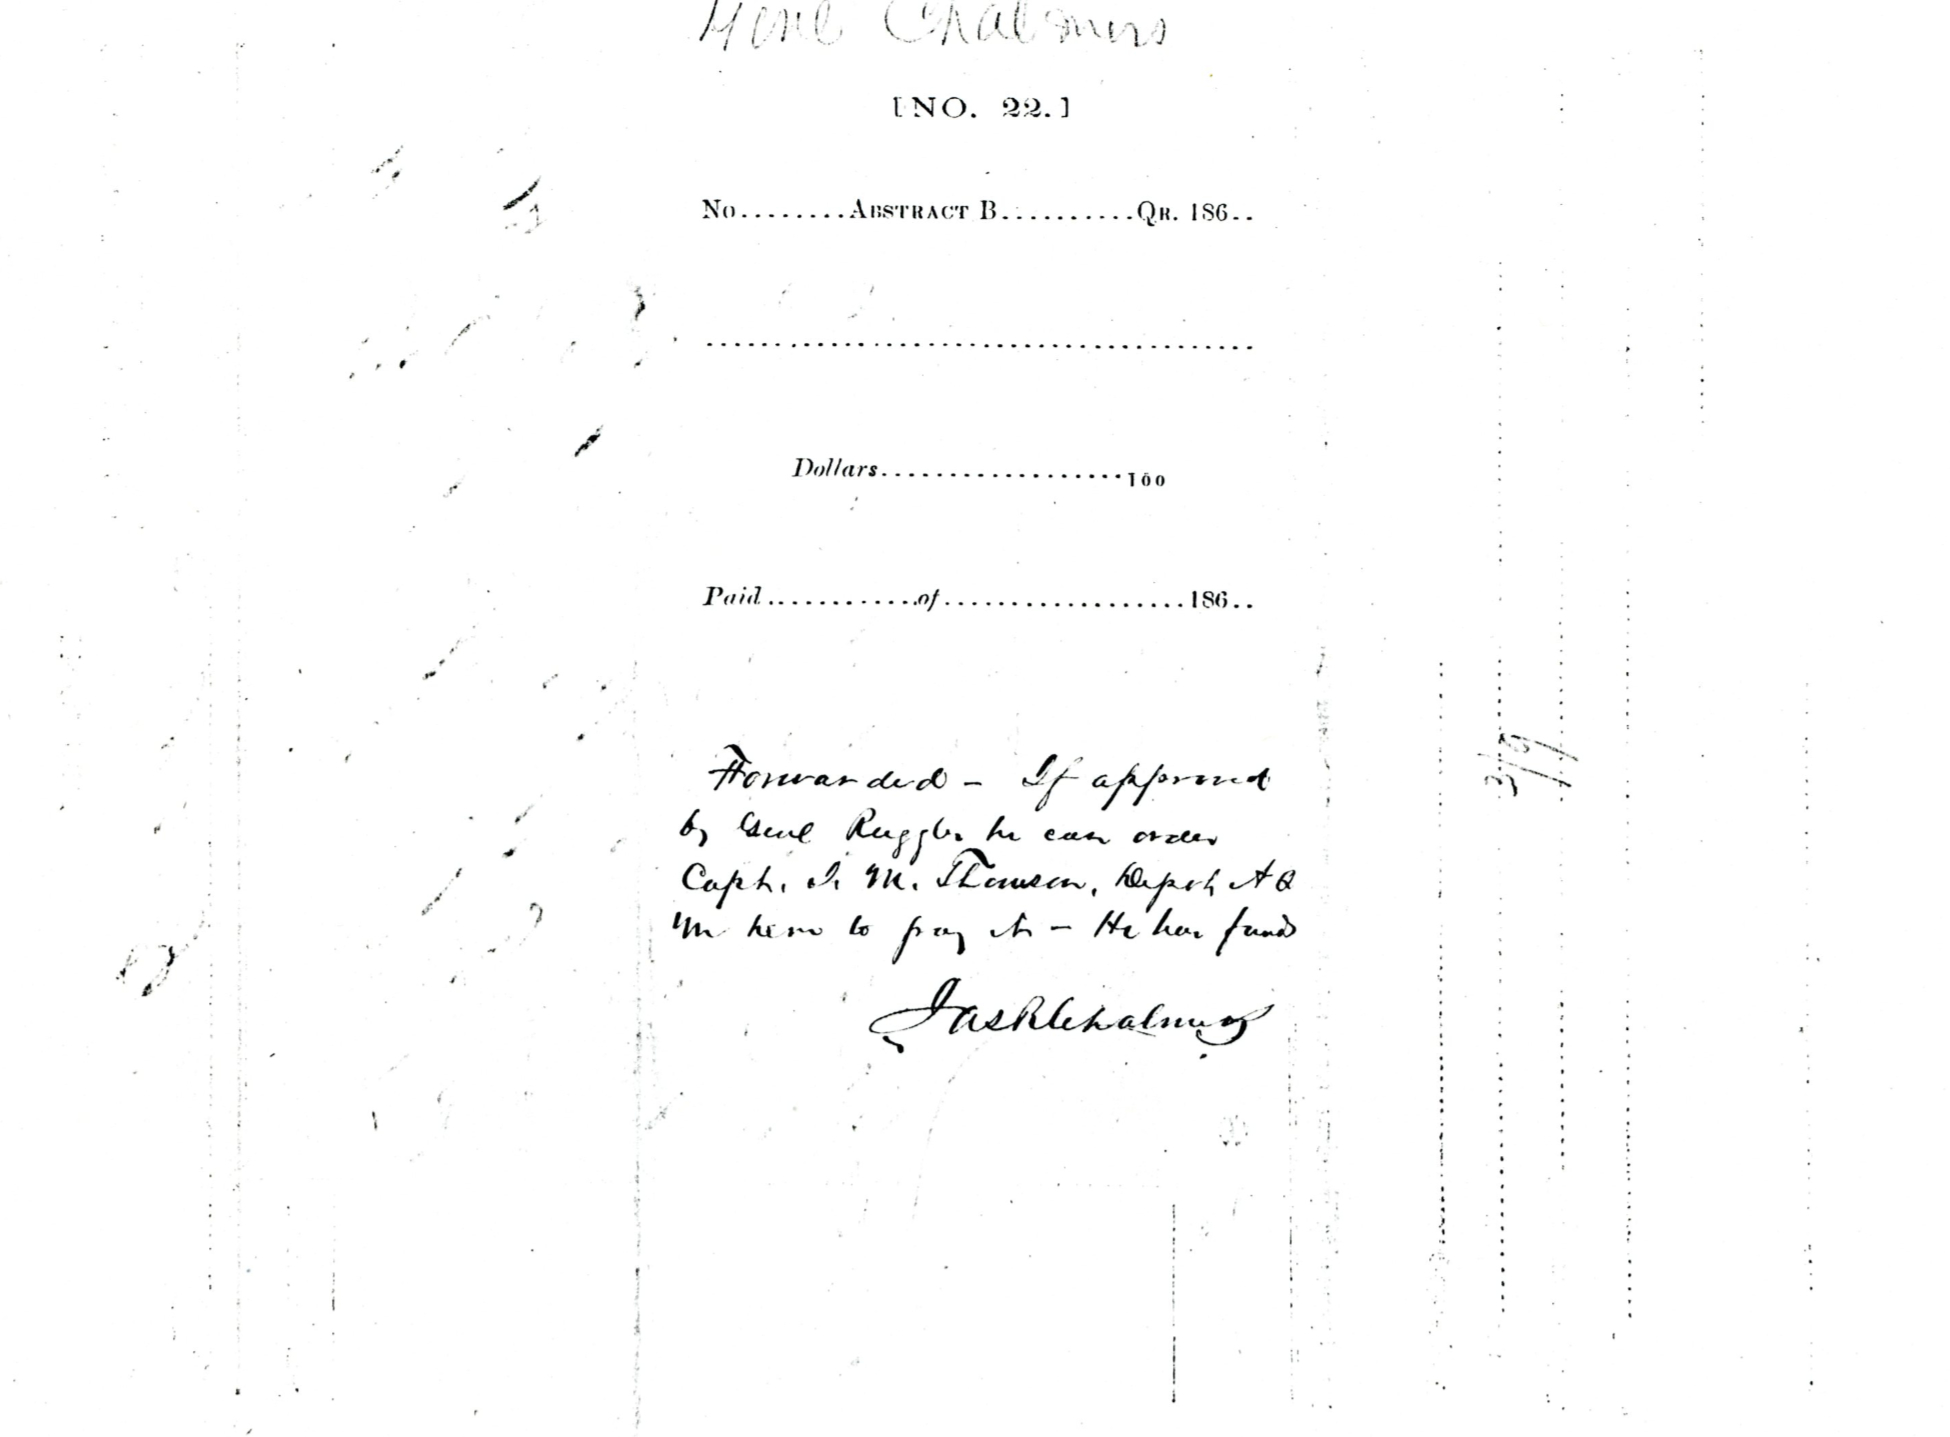 Genl Chalmers
[NO. 22.]
No........Abstract B..........Qr. 186..
Dollars...................100
Paid............of..................186..
Forwarded - If approved
by Genl Ruggles he can order
Capt. J. M. Thomson, Depot A Q
M here to pay it - He has funds
Jas R Chalmers